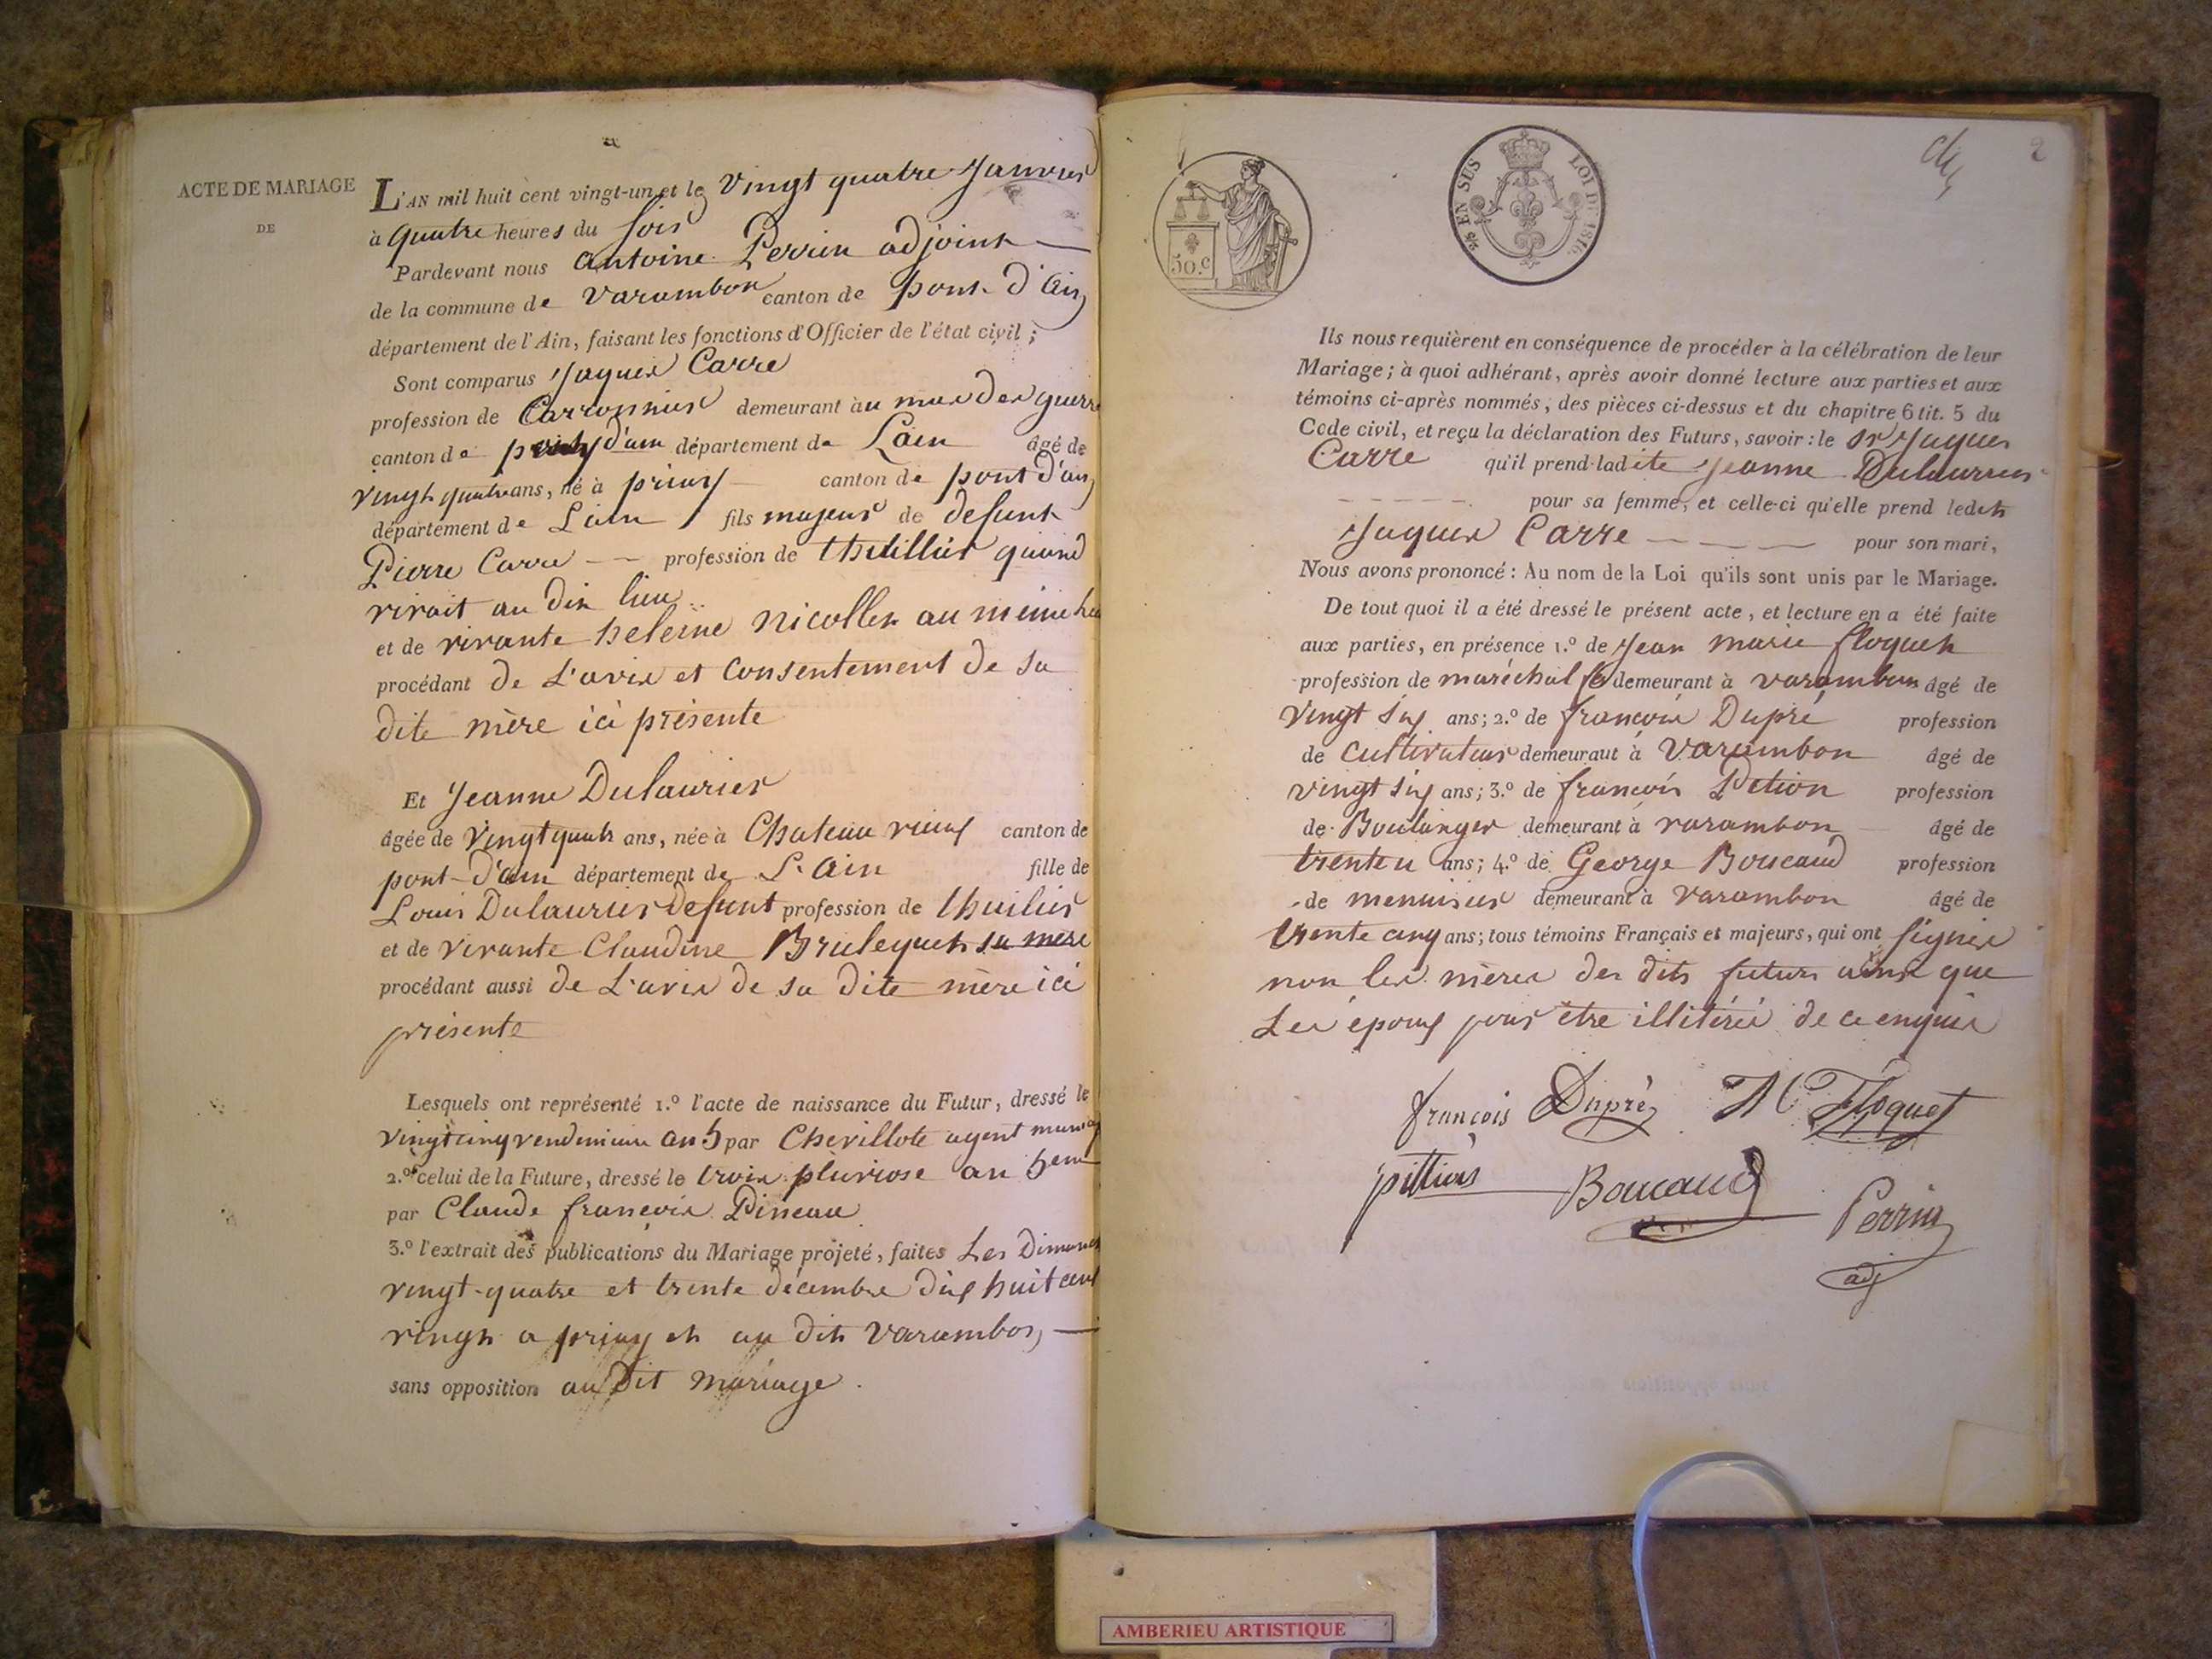 ACTE DE MARIAGE
DE
L'AN mil huit cent vingt-un et le vingt quatre Janvier
à quatre heures du soir
Pardevant nous antoine Perrin adjoint
de la commune de varambon canton de pont d'ain
département de l'Ain, faisant les fonctions d'Officier de l'état civil;
Sont comparus Jaques Carre
profession de demeurant au mas des guerre
canton de d'ain département de Lain âgé de
vingt quatre ans, né à priay canton de pont d'ain
département de Lain fils majeur de defunt
Pierre Carre profession de thuillier quand
vivait au dit lieu
et de vivante heleine nicollet au même lieu
procédant de L'avis et Consentement de sa
dite mère ici présente
Et Jeanne Dulaurier
âgée de vingt quatre ans, née à Chateau vieux canton de
pont-d'ain département de L'Ain fille de
Louis Dulaurier Defunt profession de thuilier
et de vivante Claudine Bruleguet sa mère
procédant aussi de L'avis de sa dite mère ici
présente
Lesquels ont représenté 1.º l'acte de naissance du Futur, dressé le
vingt cinq vendemiaire an 5 par Chevillote agent
2.º celui de la Future, dressé le trois pluviose an 5eme
par Claude françois Pineau
3.º l'extrait des publications du Mariage projeté, faites Les Dimanches
vingt-quatre et trente décembre dix huit cent
vingt a priay et au dit varambon
sans opposition au Dit mariage.
2
50.c
EN SUS
LOI DE 1816
Ils nous requièrent en conséquence de procéder à la célébration de leur
Mariage; à quoi adhérant, après avoir donné lecture aux parties et aux
témoins ci-après nommés, des pièces ci-dessus et du chapitre 6 tit. 5 du
Code civil, et reçu la déclaration des Futurs, savoir: le sr Jaques
Carre qu'il prend ladite Jeanne Dulaurier
pour sa femme, et celle-ci qu'elle prend ledit
Jaques Carre pour son mari,
Nous avons prononcé: Au nom de la Loi qu'ils sont unis par le Mariage.
De tout quoi il a été dressé le présent acte, et lecture en a été faite
aux parties, en présence 1.º de Jean marie floquet
profession de maréchal demeurant à varambon âgé de
vingt six ans; 2.º de françois Dupré profession
de cultivateur demeurant à varambon âgé de
vingt six ans; 3.º de françois Petion profession
de Boulanger demeurant à varambon âgé de
trente u ans; 4.º de George Boucaud profession
de menuisier demeurant à varambon âgé de
trente cinq ans; tous témoins Français et majeurs, qui ont signés
non les mères des dits futurs ainsi que
Les époux pour être illitérés de ce enquis
françois Dupré M Floquet
pittions Boucaud Perrin
adj
AMBERIEU ARTISTIQUE